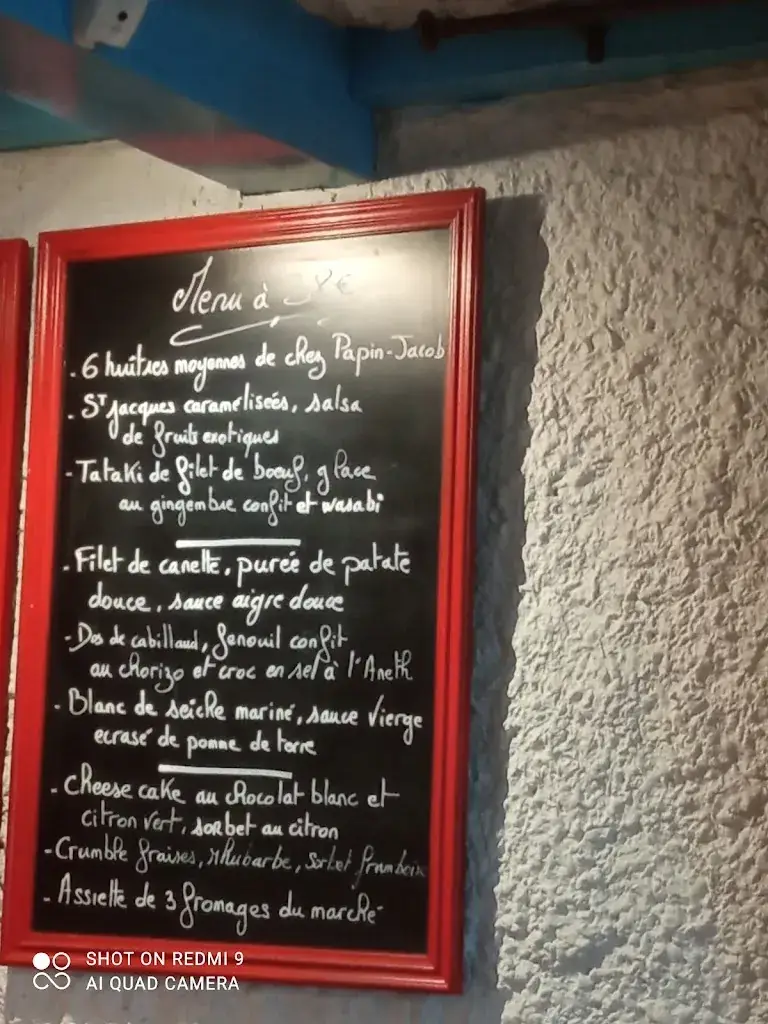 Menu à €
. 6 huîtres moyennes de chez Papin-Jacob
. St Jacques caramélisées, salsa
de fruits exotiques
- Tataki de filet de boeuf, glace
au gingembre confit et wasabi
. Filet de canette, purée de patate
douce, sauce aigre douce
- Dos de cabillaud, fenouil confit
au chorizo et croc en sel à l'Aneth
- Blanc de seiche mariné, sauce vierge
ecrasé de pomme de terre
. Cheese cake au chocolat blanc et
citron vert, sorbet au citron
- Crumble fraises, rhubarbe, sorbet
- Assiette de 3 fromages du marché
SHOT ON REDMI 9
AI QUAD CAMERA